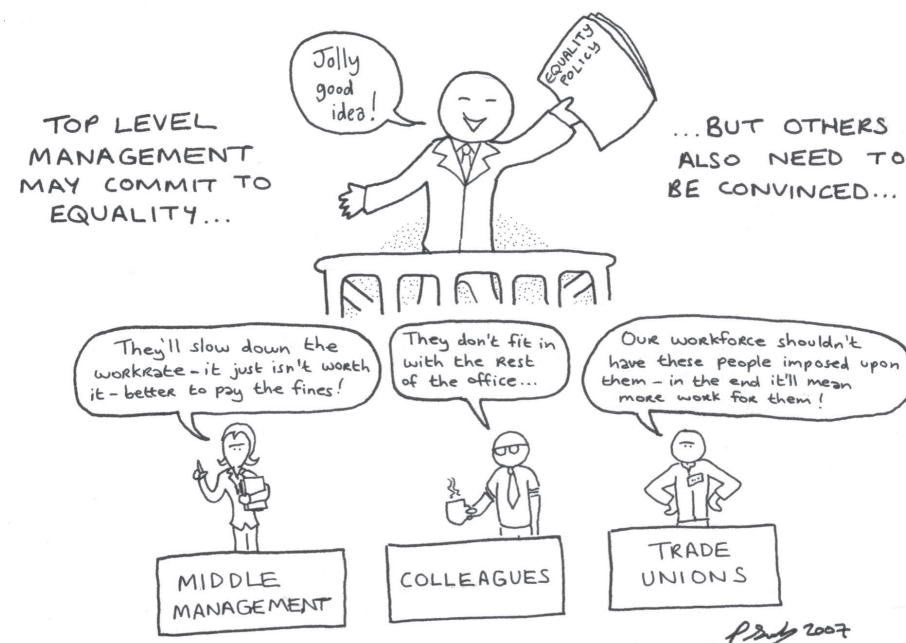 Jolly
good
idea!
EQUALITY
POLICY
TOP LEVEL
MANAGEMENT
MAY COMMIT TO
EQUALITY...
...BUT OTHERS
ALSO NEED TO
BE CONVINCED...
They'll slow down the
workrate - it just isn't worth
it - better to pay the fines!
They don't fit in
with the rest
of the office...
Our workforce shouldn't
have these people imposed upon
them - in the end it'll mean
more work for them!
MIDDLE
MANAGEMENT
COLLEAGUES
TRADE
UNIONS
2007